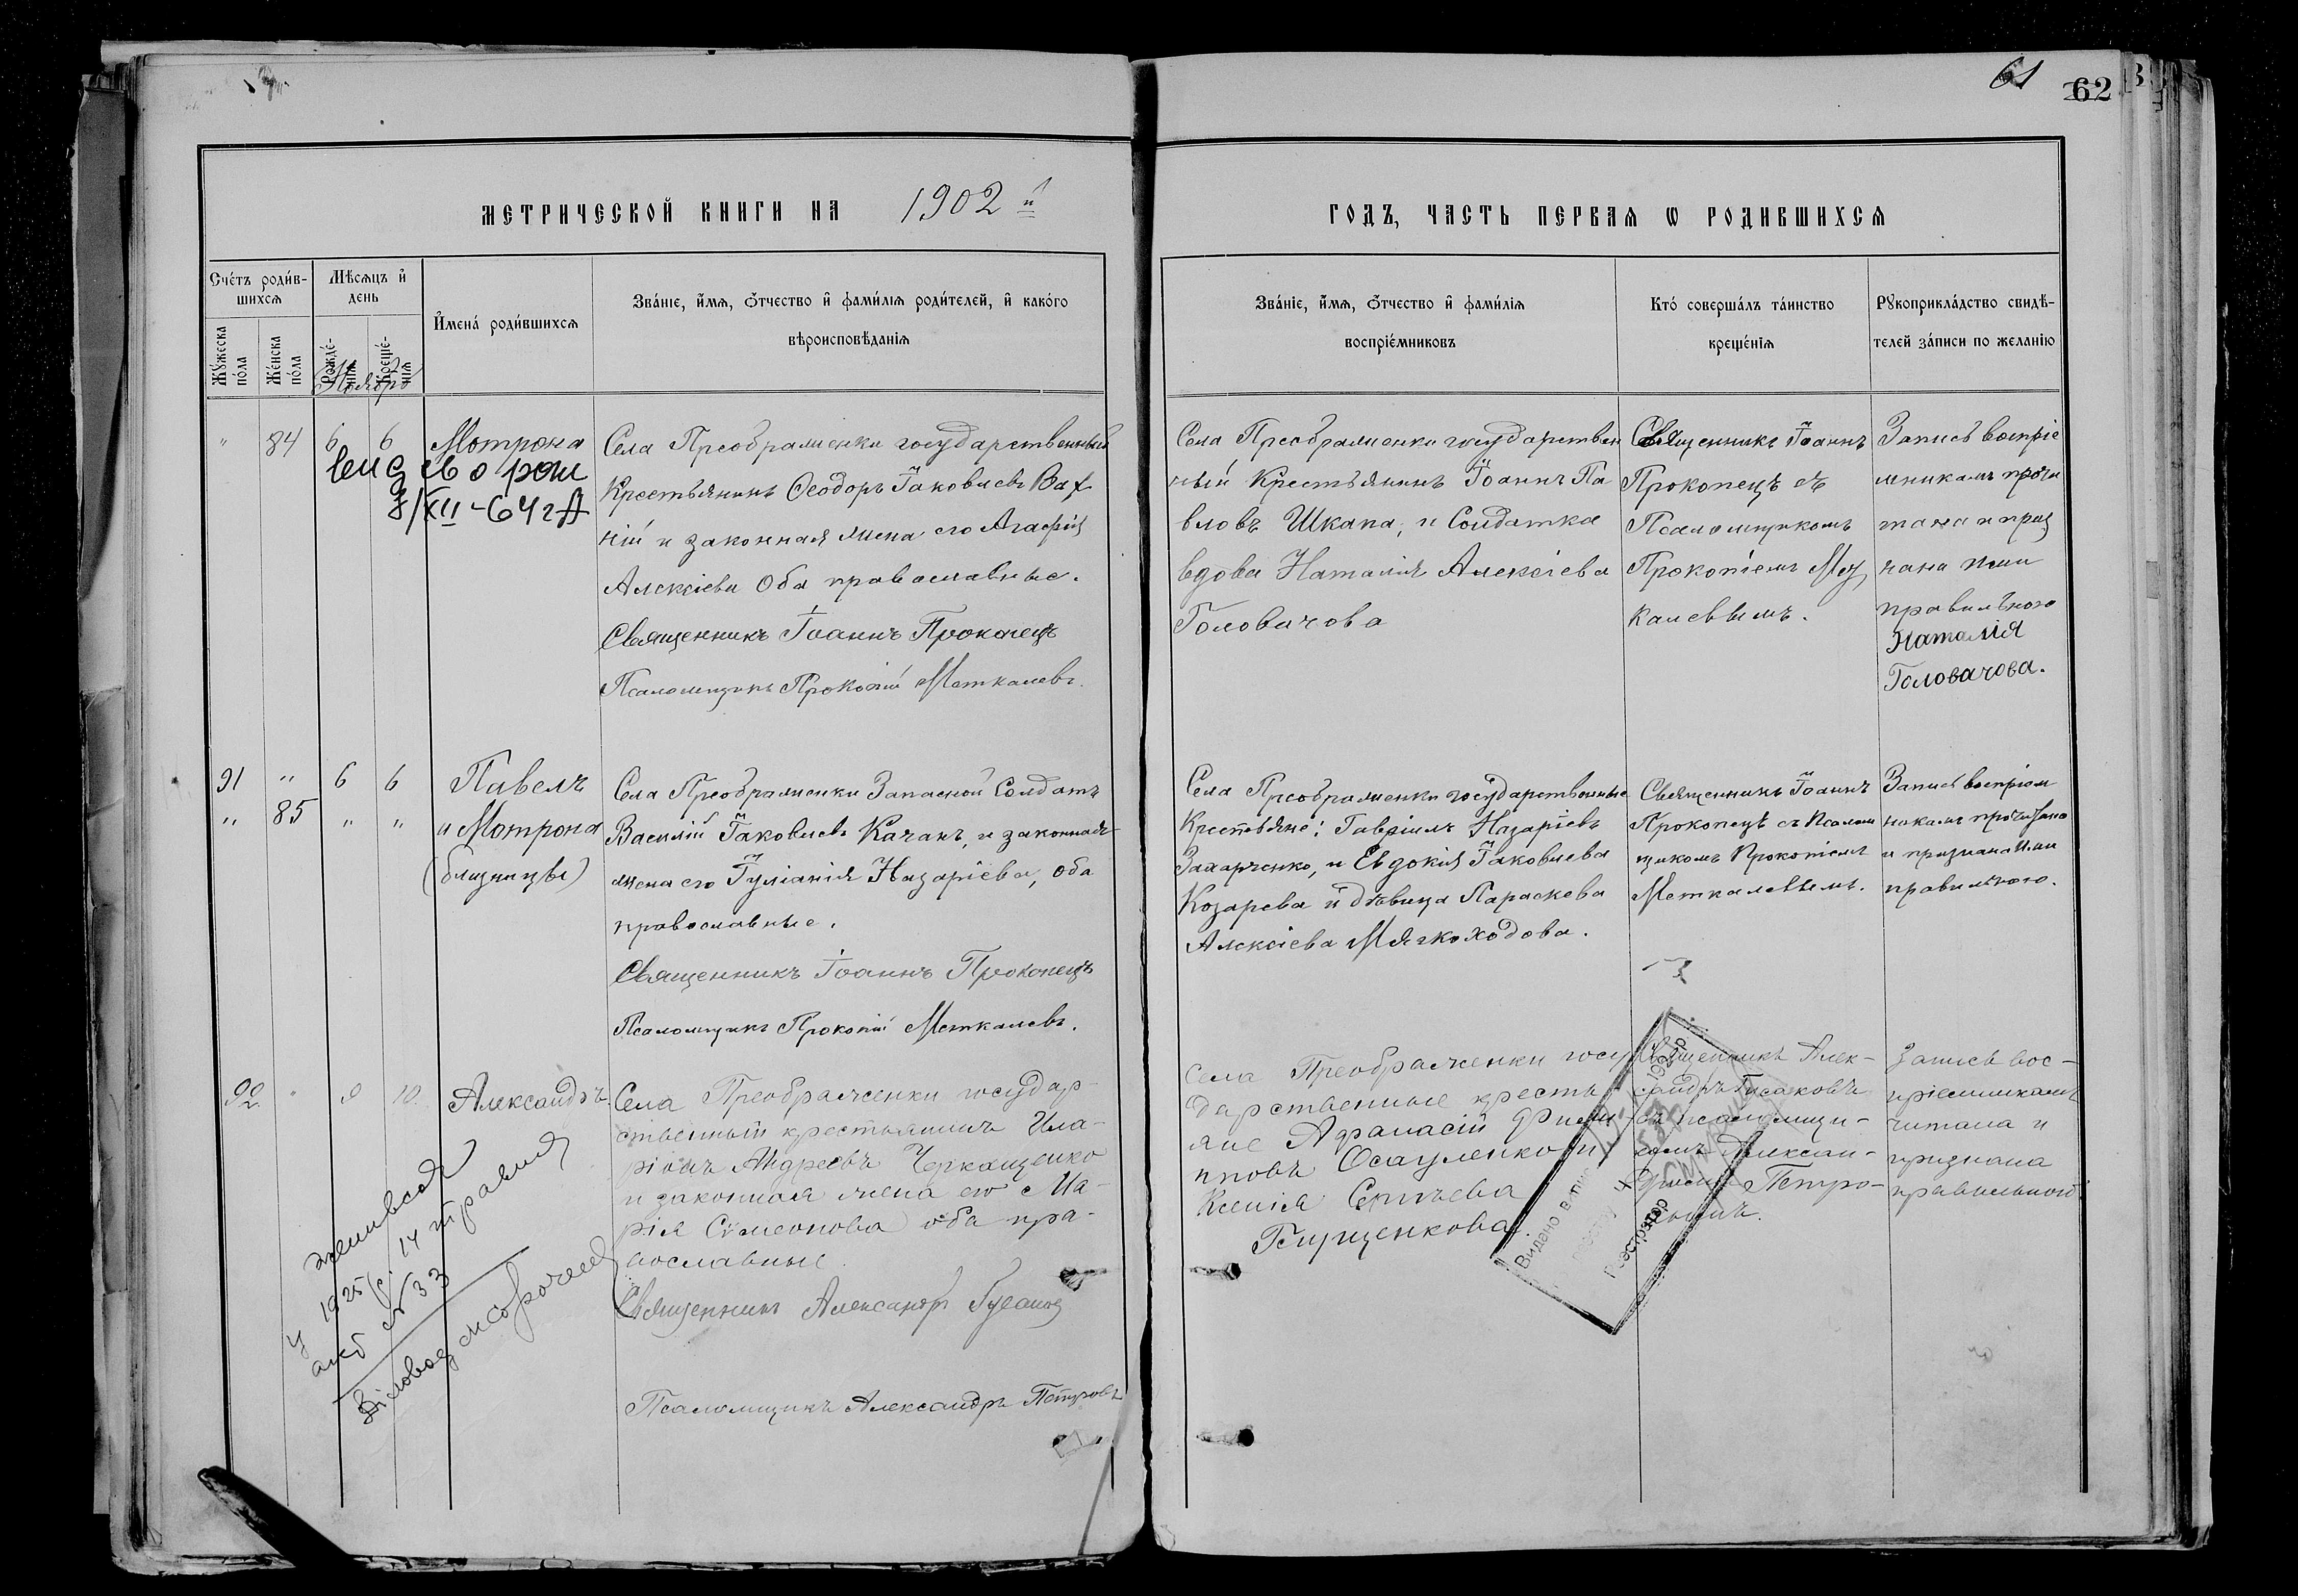 61
62
МЕТРИЧЕСКОЙ КНИГИ НА 1902 й
ГОДЪ, ЧАСТЬ ПЕРВАЯ Ѡ РОДИВШИХСЯ
Счетъ родив-
шихся
Мужеска
пола
Женска
пола
Мѣсяцъ и
день
Рожде-
нія
Креще-
нія
Ноябрь
Имена родившихся
Званіе, имя, отчество и фамилія родителей, и какого
вѣроисповѣданія
Званіе, имя, отчество и фамилія
воспріемниковъ
Кто совершалъ таинство
крещенія
Рукоприкладство свидѣ-
телей записи по желанію
" 84 6 6 Мотрона
св о рож
/XII-64 г
Села Преображенки государственный
Крестьянинъ Ѳеодоръ Іаковлевъ Вах
ній и законная жена его Агафія
Алексіева Оба православные.
Священникъ Іоаннъ Прокопецъ
Псаломщикъ Прокопій Меткалевъ.
Села Преображенки государствен
ный Крестьянинъ Іоаннъ Па
вловъ Шкапа, и Солдатка
вдова Наталія Алексіева
Головачова
Священникъ Іоаннъ
Прокопецъ съ
Псаломщикомъ
Прокопіемъ Мет
калевымъ.
Запись воспріе
мникамъ прочи
тана и приз
нана ими
правильною
Наталія
Головачова.
91 " 6 6 Павелъ
" 85 " " и Мотрона
(близнецы)
Села Преображенки Запасной Солдатъ
Василій Іаковлевъ Качанъ, и законная
жена его Іуліанія Назаріева, оба
православные.
Священникъ Іоаннъ Прокопецъ
Псаломщикъ Прокопій Меткалевъ.
Села Преображенки государственные
Крестьяне: Гавріилъ Назаріевъ
Захарченко, и Евдокія Іаковлева
Козарева и дѣвица Параскева
Алексіева Мягкоходова.
Священникъ Іоаннъ
Прокопецъ съ Псалом
щикомъ Прокопіемъ
Меткалевымъ.
Запись воспріем
никамъ прочитана
и признана ими
правильною.
92 " 9 10. Александръ.
Села Преображенки государ-
ственный крестьянинъ Ила-
ріонъ Андреевъ Черкащенко
и законная жена его Ма-
рія Симеонова оба пра-
вославные.
Священникъ Александръ Гусаковъ
Псаломщикъ Александръ Петровъ
Села Преображенки госу
дарственные кресть-
яне Афанасій Фили
пповъ Осауленко и
Ксенія Сергѣева
Грищенкова.
Священникъ Алек-
сандръ Гусаковъ
съ псаломщи-
комъ Алексан-
дромъ Петро-
вымъ.
Запись вос-
пріемникамъ
читана и
признана
правильной
у 1925 р. 14 травня
акт № 33
Діловод
Видано
Реєстратор